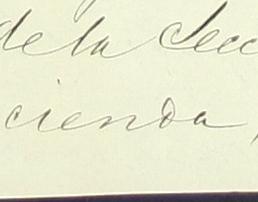 de la Secc
cienda,